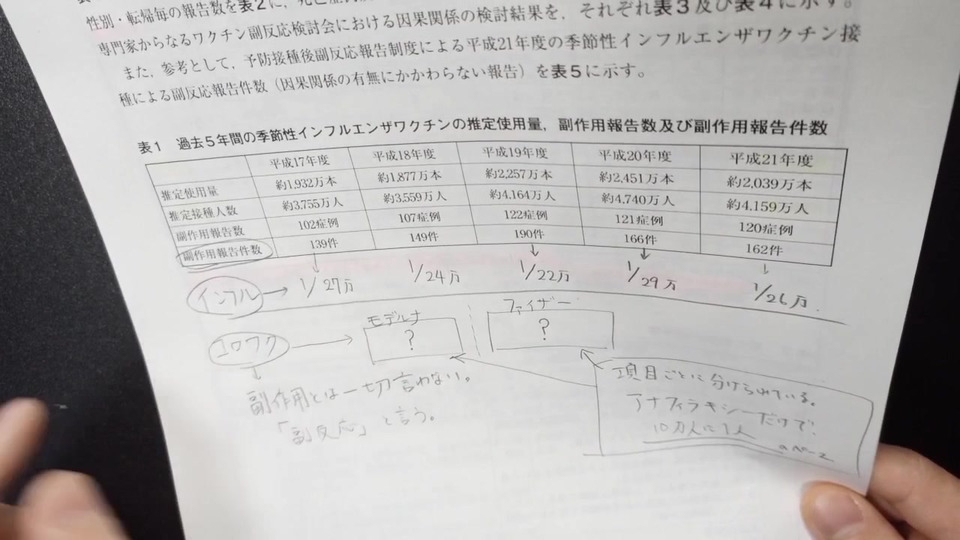 性別・転帰毎の報告数を表2に、死亡
専門家からなるワクチン副反応検討会における因果関係の検討結果を、それぞれ表3及び表4に示す。
また、参考として、予防接種後副反応報告制度による平成21年度の季節性インフルエンザワクチン接
種による副反応報告件数（因果関係の有無にかかわらない報告）を表5に示す。
表1 過去5年間の季節性インフルエンザワクチンの推定使用量，副作用報告数及び副作用報告件数
平成17年度 平成18年度 平成19年度 平成20年度 平成21年度
推定使用量 約1,932万本 約1,877万本 約2,257万本 約2,451万本 約2,039万本
推定接種人数 約3,755万人 約3,559万人 約4,164万人 約4,740万人 約4,159万人
副作用報告数 102症例 107症例 122症例 121症例 120症例
副作用報告件数 139件 149件 190件 166件 162件
インフル → 1/27万 1/24万 1/22万 1/29万 1/26万
モデルナ ファイザー
コロワク → ? ?
副作用とは一切言わない。
「副反応」と言う。
項目ごとに分けられている。
アナフィラキシーだけで
10万人に1人
のペース